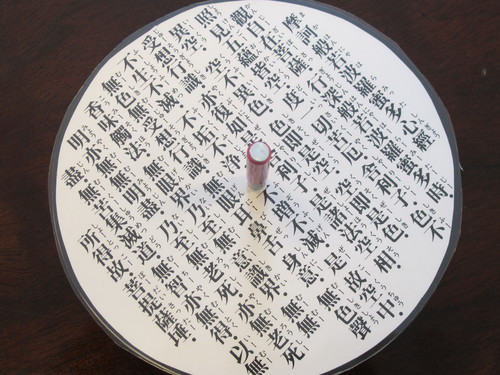 摩訶般若波羅蜜多心經
觀自在菩薩行深般若波羅蜜多時。
照見五蘊皆空。度一切苦厄。舍利子。色不
異空。空不異色。色即是空。空即是色。
受想行識。亦復如是。舍利子。是諸法空相。
不生不滅。不垢不淨。不增不減。是故空中。
無色無受想行識。無眼耳鼻舌身意。無色聲
香味觸法。無眼界。乃至無意識界。無無
明。亦無無明盡。乃至無老死。亦無老死
盡。無苦集滅道。無智亦無得。以無
所得故。菩提薩埵。